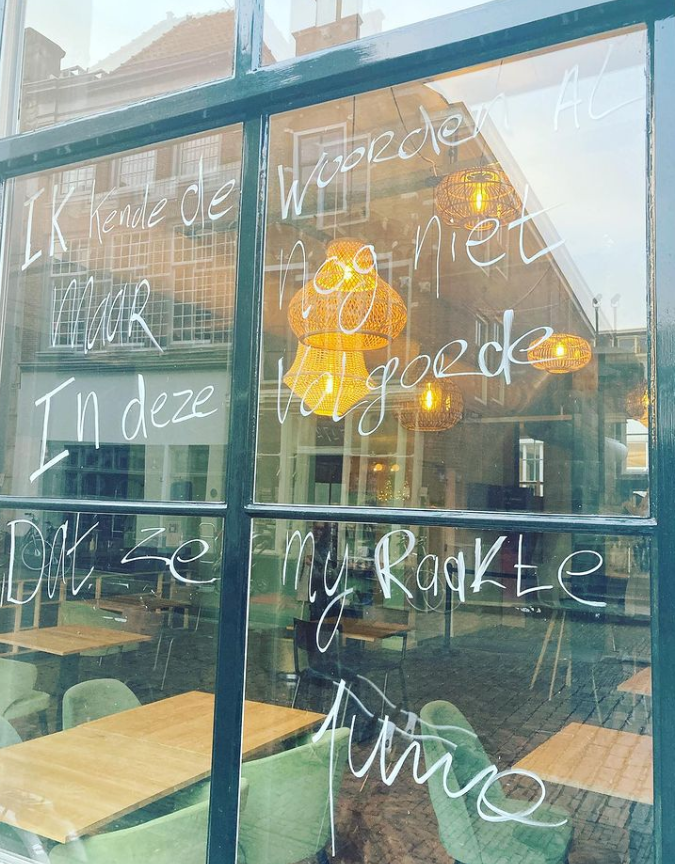 IK kende de woorden AL
maar nog niet
In deze volgorde
Dat ze my Raakte